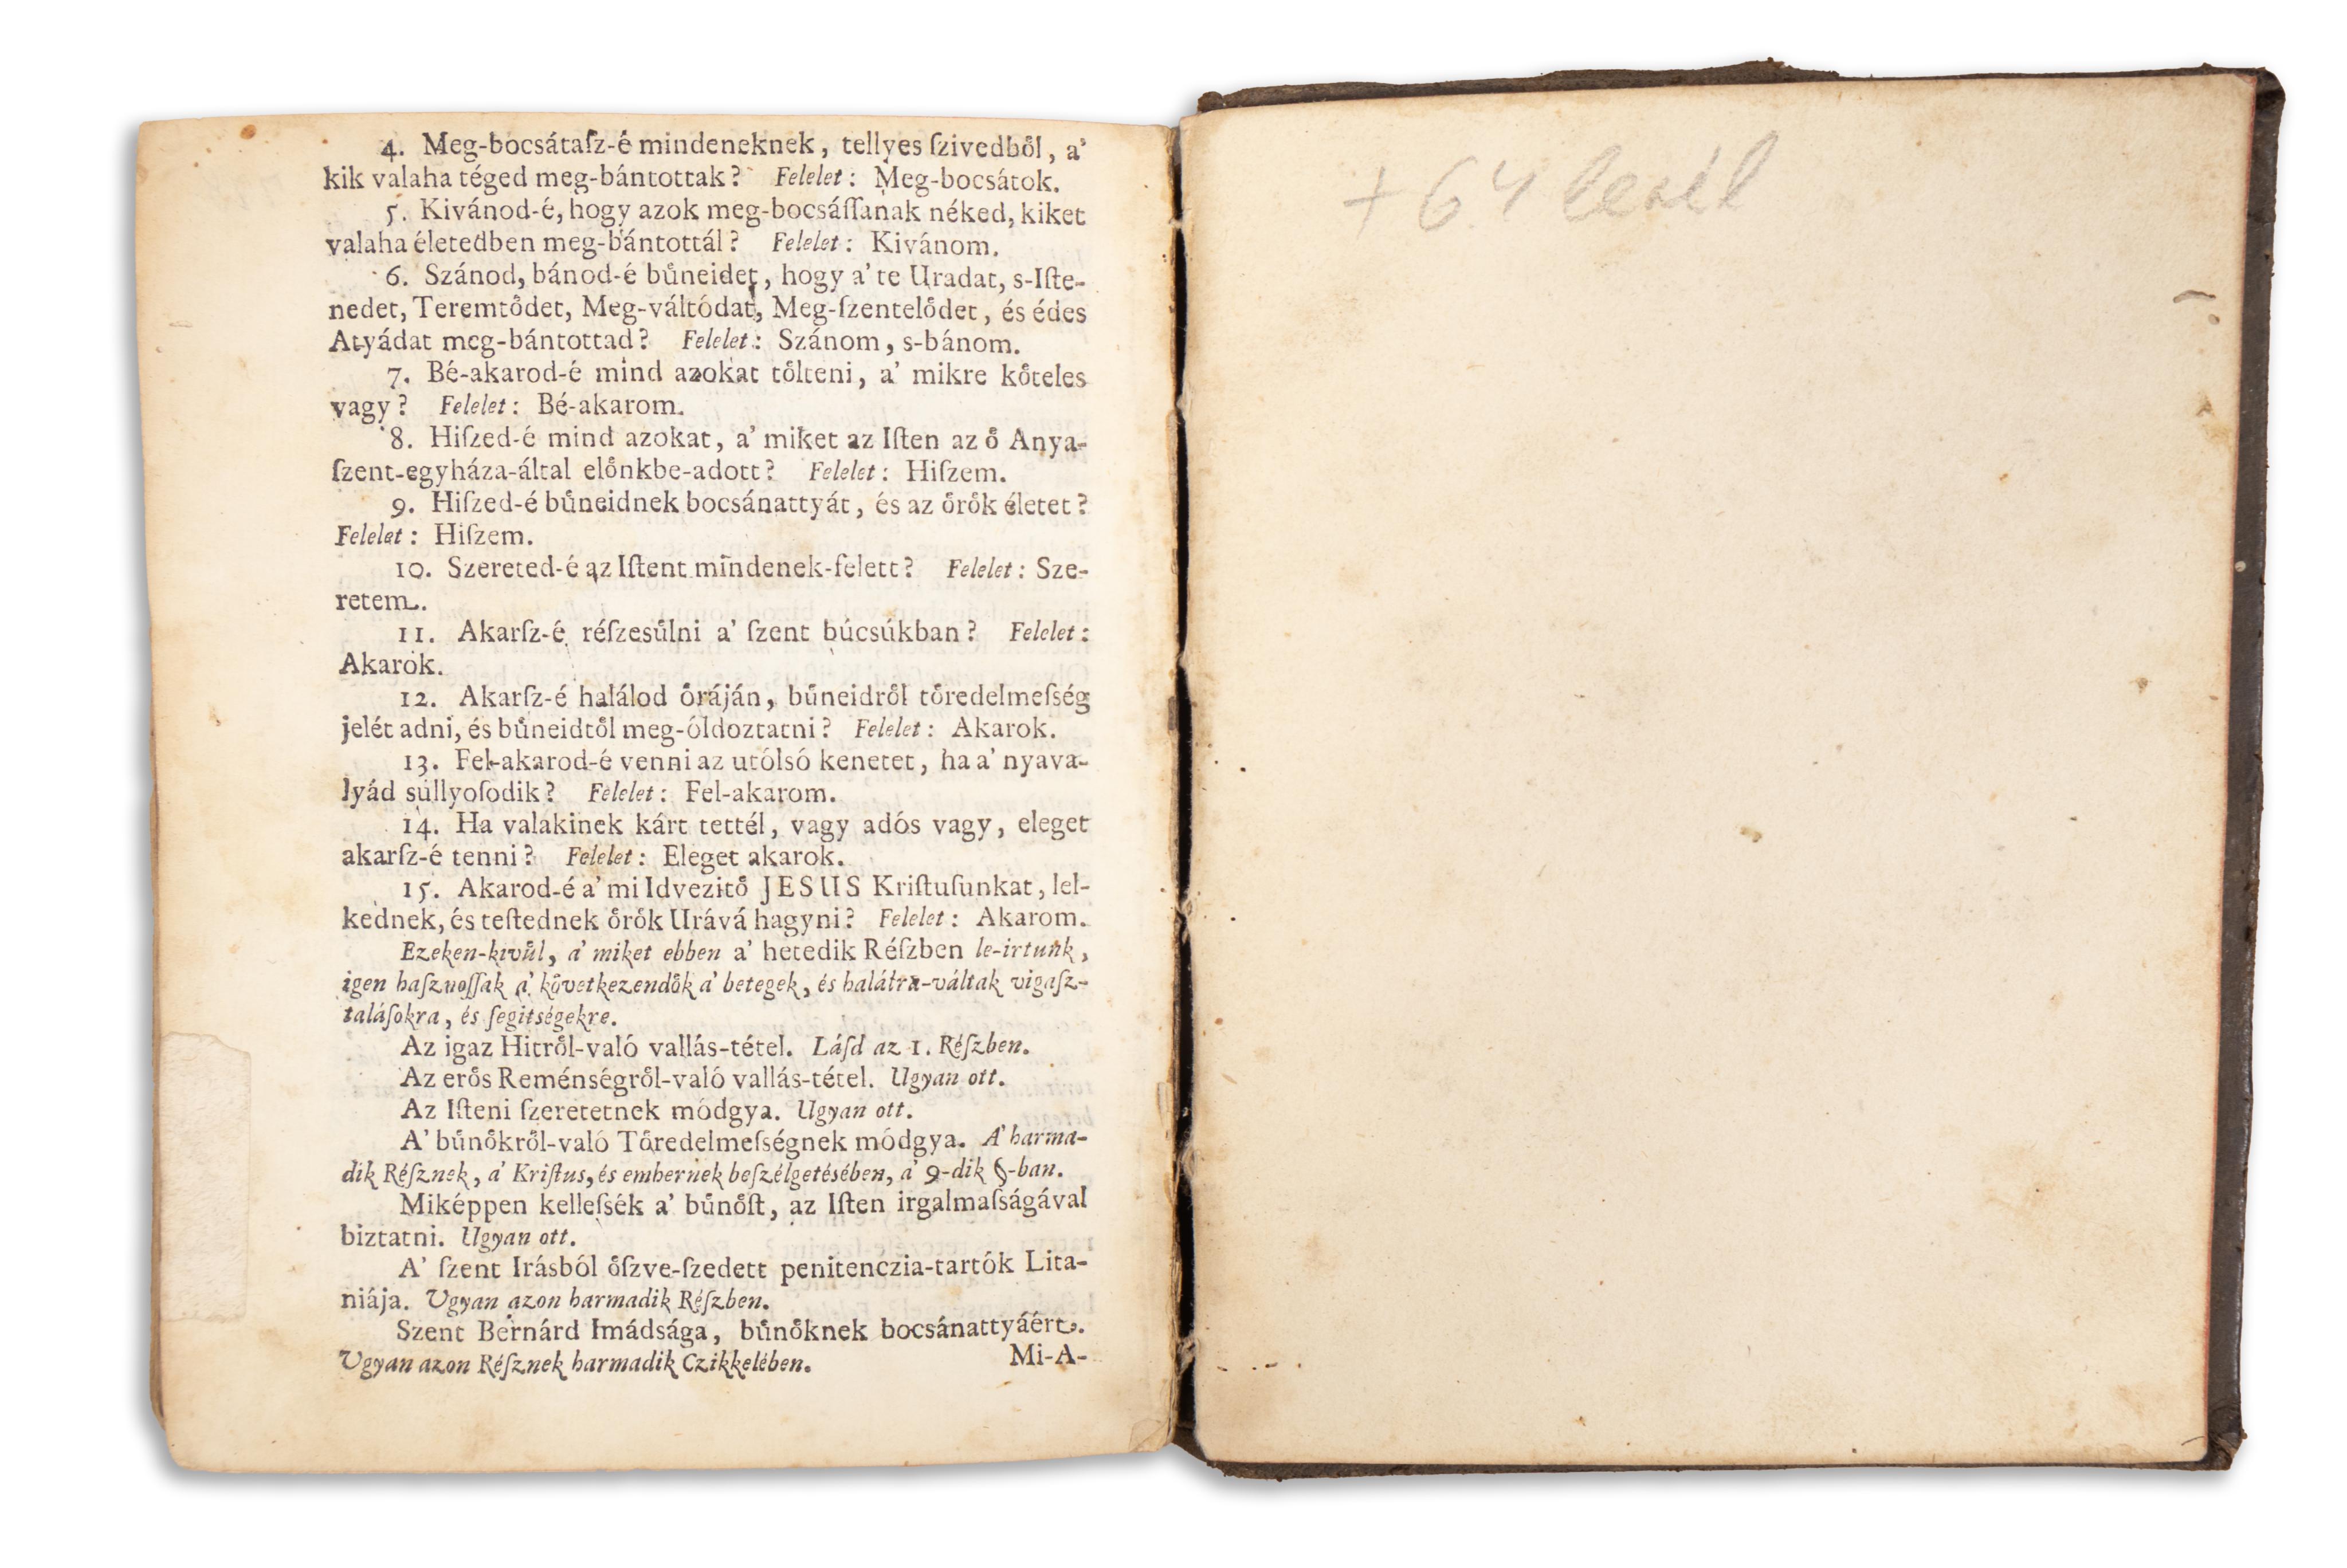 4. Meg-bocsátaſz-é mindeneknek, tellyes ſzivedből, a'
kik valaha téged meg-bántottak? Felelet: Meg-bocsátok.
5. Kivánod-é, hogy azok meg-bocsáſſanak néked, kiket
valaha életedben meg-bántottál? Felelet: Kivánom.
6. Szánod, bánod-é bűneidet, hogy a' te Uradat, s-Iſte-
nedet, Teremtődet, Meg-váltódat, Meg-ſzentelődet, és édes
Atyádat meg-bántottad? Felelet: Szánom, s-bánom.
7. Bé-akarod-é mind azokat tőlteni, a' mikre kőteles
vagy? Felelet: Bé-akarom.
8. Hiſzed-é mind azokat, a' miket az Iſten az ő Anya-
ſzent-egyháza-által előnkbe-adott? Felelet: Hiſzem.
9. Hiſzed-é bűneidnek bocsánattyát, és az őrők életet?
Felelet: Hiſzem.
10. Szereted-é az Iſtent mindenek-felett? Felelet: Sze-
retem.
11. Akarſz-é réſzesűlni a' ſzent búcsúkban? Felelet:
Akarok.
12. Akarſz-é halálod óráján, bűneidről tőredelmeſség
jelét adni, és bűneidtől meg-óldoztatni? Felelet: Akarok.
13. Fel-akarod-é venni az utólsó kenetet, ha a' nyava-
lyád súllyoſodik? Felelet: Fel-akarom.
14. Ha valakinek kárt tettél, vagy adós vagy, eleget
akarſz-é tenni? Felelet: Eleget akarok.
15. Akarod-é a' mi Idvezitő JESUS Kriſtuſunkat, lel-
kednek, és teſtednek őrők Urává hagyni? Felelet: Akarom.
Ezeken-kivűl, a' miket ebben a' hetedik Réſzben le-irtunk,
igen haſznoſſak a' kővetkezendők a' betegek, és halálra-váltak vigaſz-
taláſokra, és ſegitségekre.
Az igaz Hitről-való vallás-tétel. Láſd az 1. Réſzben.
Az erős Reménségről-való vallás-tétel. Ugyan ott.
Az Iſteni ſzeretetnek módgya. Ugyan ott.
A' bűnőkről-való Tőredelmeſségnek módgya. A' harma-
dik Réſznek, a' Kriſtus, és embernek beſzélgetésében, a' 9-dik §-ban.
Miképpen kelleſsék a' bűnőſt, az Iſten irgalmaſságával
biztatni. Ugyan ott.
A' ſzent Irásból őſzve-ſzedett penitenczia-tartók Lita-
niája. Ugyan azon harmadik Réſzben.
Szent Bernárd Imádsága, bűnőknek bocsánattyáért.
Ugyan azon Réſznek harmadik Czikkelében.
Mi-A-
+ 64 levél